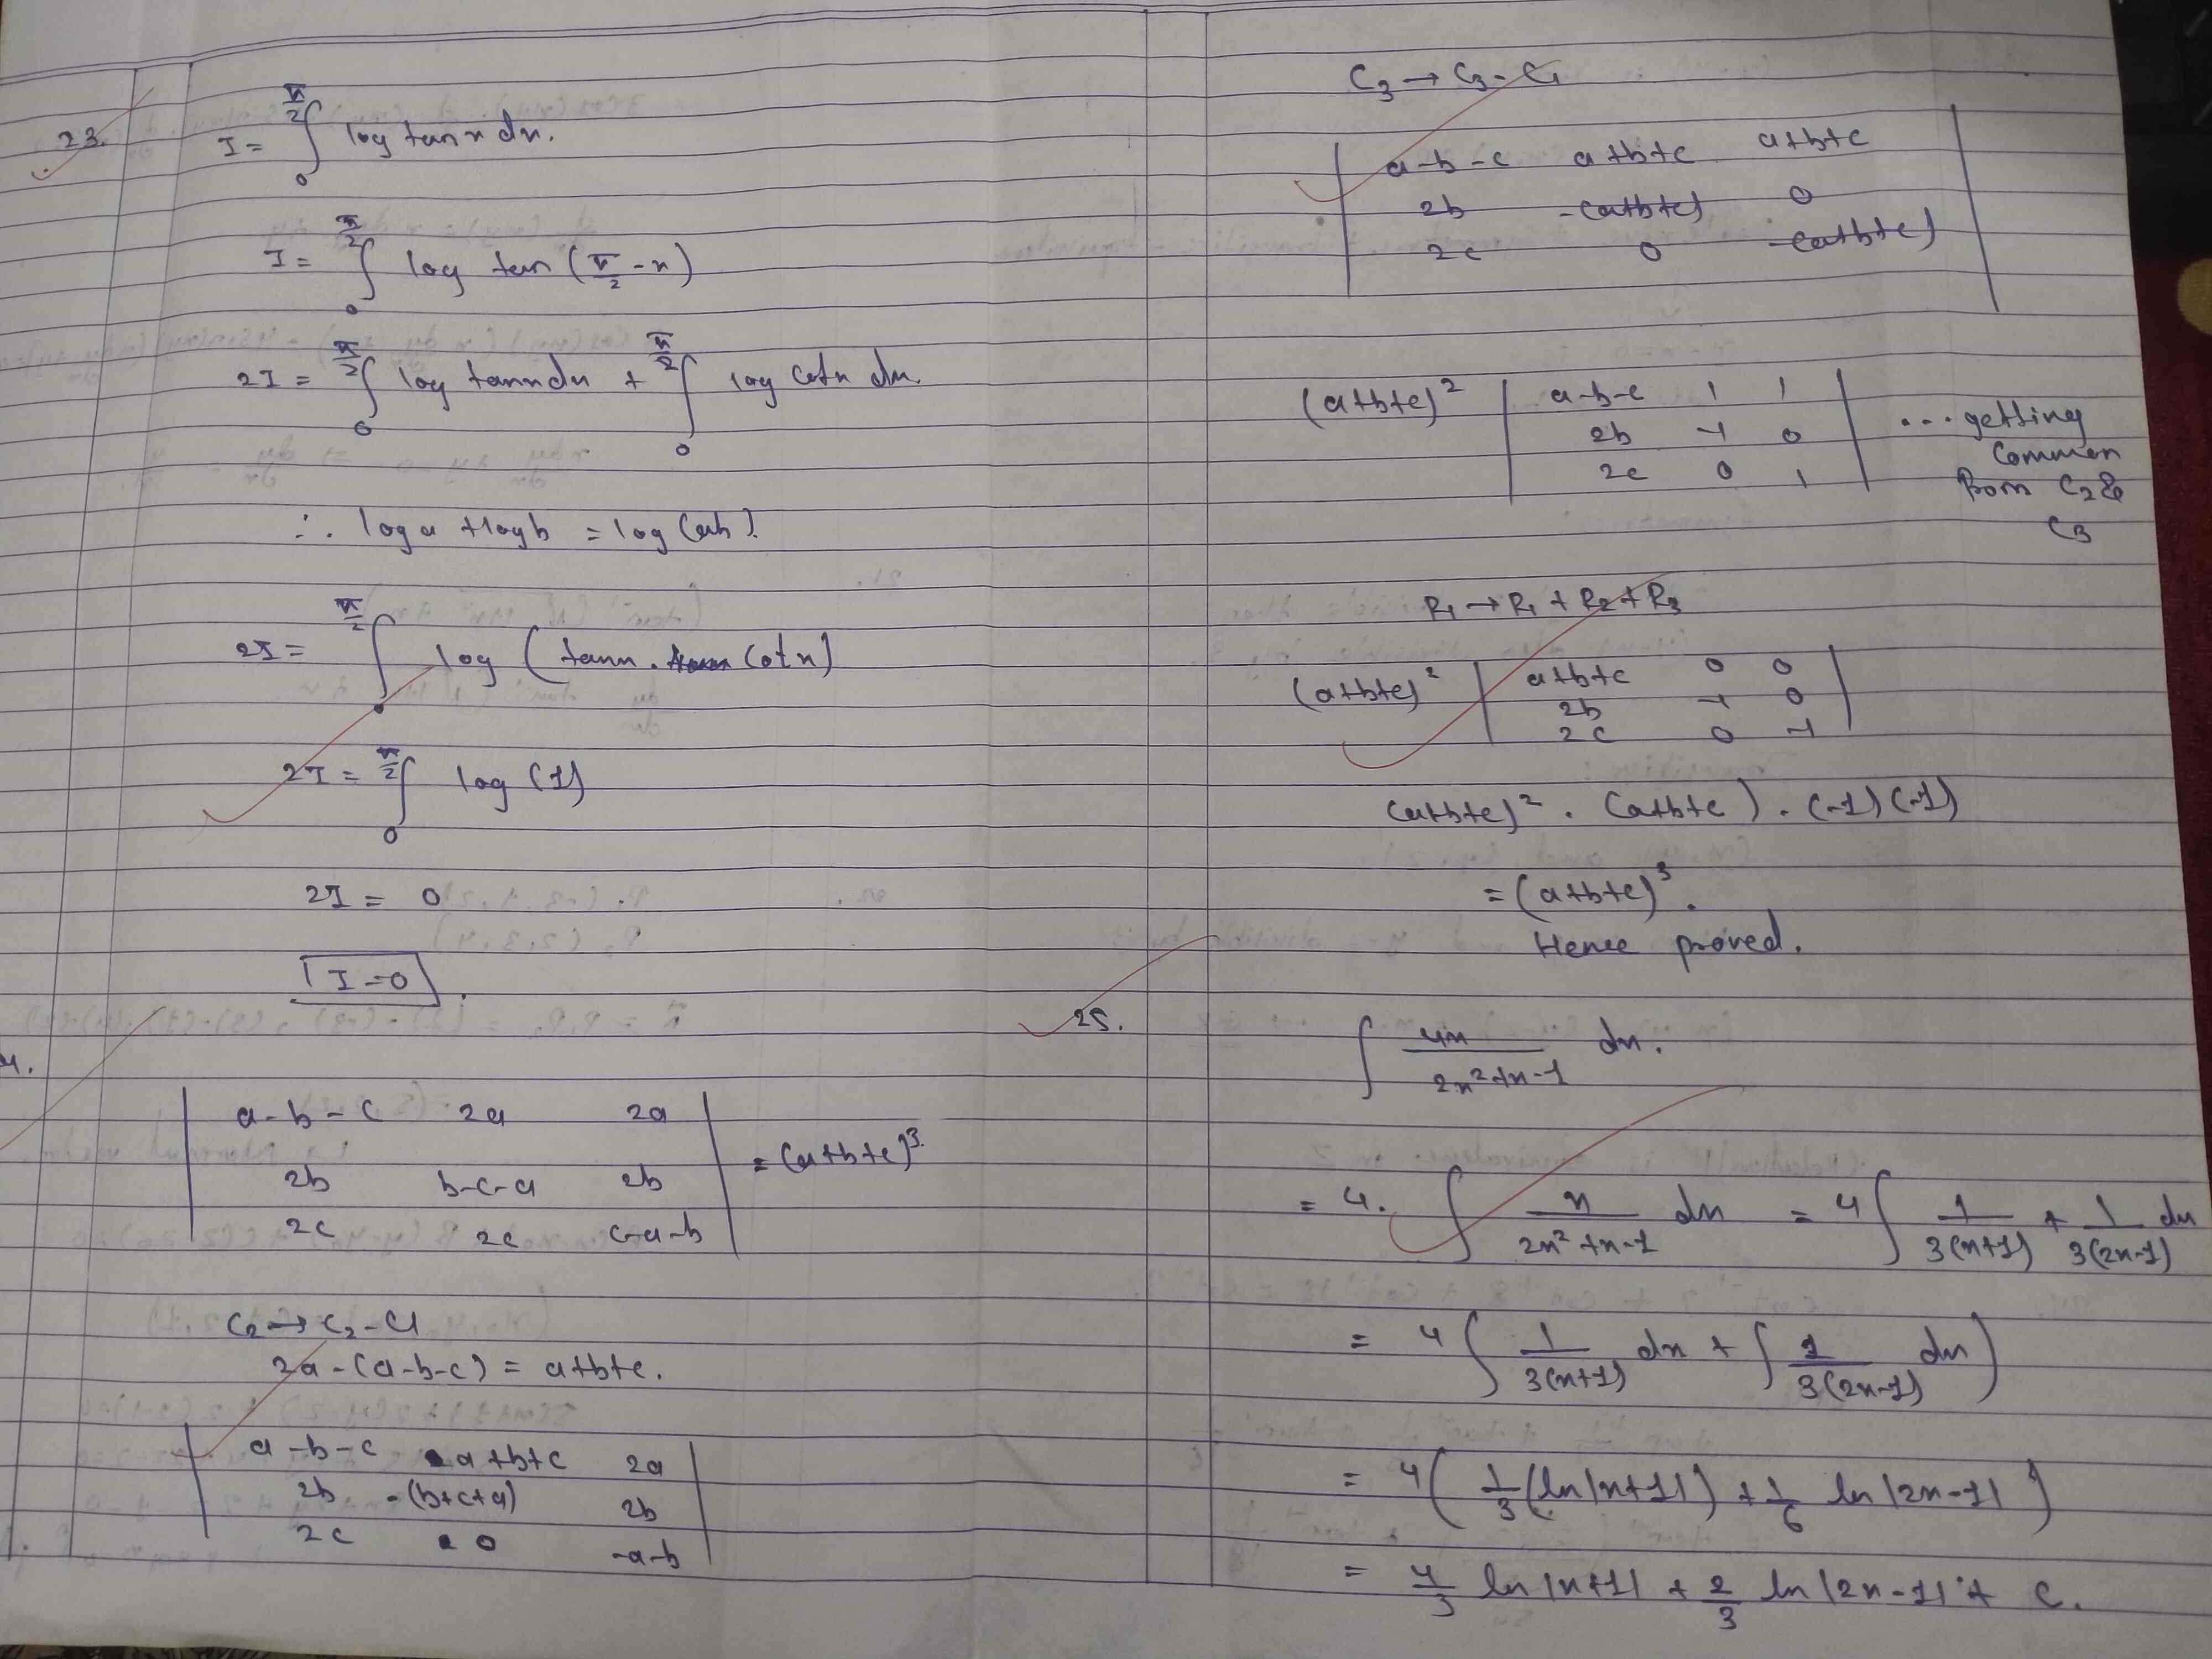 23.
I = ∫₀^(π/2) log tan x dx.
I = ∫₀^(π/2) log tan (π/2 - x)
2I = ∫₀^(π/2) log tan x dx + ∫₀^(π/2) log cot x dx.
∴ log a + log b = log (ab).
2I = ∫₀^(π/2) log (tan x . cot x)
2I = ∫₀^(π/2) log (1)
2I = 0
I = 0 .
4.
| a-b-c 2a 2a |
| 2b b-c-a 2b | = (a+b+c)³.
| 2c 2c c-a-b |
C₂ → C₂ - C1
2a - (a-b-c) = a+b+c.
| a-b-c a+b+c 2a |
| 2b -(b+c+a) 2b |
| 2c 0 -a-b |
C₃ → C₃ - C₁
| a-b-c a+b+c a+b+c |
| 2b -(a+b+c) 0 |
| 2c 0 -(a+b+c) |
(a+b+c)² | a-b-c 1 1 | ... getting
| 2b -1 0 | Common
| 2c 0 1 | from C₂ &
C3
R₁ → R₁ + R₂ + R₃
(a+b+c)² | a+b+c 0 0 |
| 2b -1 0 |
| 2c 0 -1 |
(a+b+c)² . (a+b+c) . (-1) (-1)
= (a+b+c)³.
Hence proved.
25.
∫ 4x/(2x²+x-1) dx.
= 4. ∫ x/(2x²+x-1) dx = 4 ∫ 1/(3(x+1)) + 1/(3(2x-1)) dx
= 4 (∫ 1/(3(x+1)) dx + ∫ 1/(3(2x-1)) dx)
= 4 ( 1/3 (ln|x+1|) + 1/6 ln|2x-1| )
= 4/3 ln|x+1| + 2/3 ln|2x-1| + C.